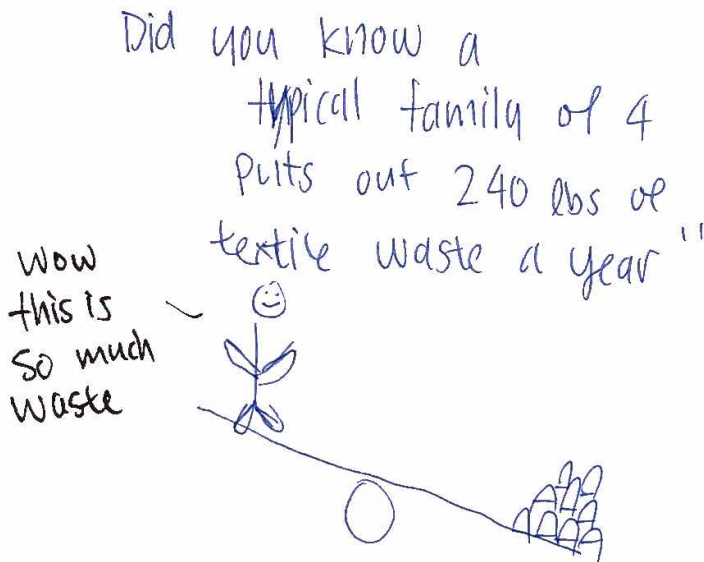 Did you know a
typical family of 4
puts out 240 lbs of
textile waste a year"
wow
this is
so much
waste